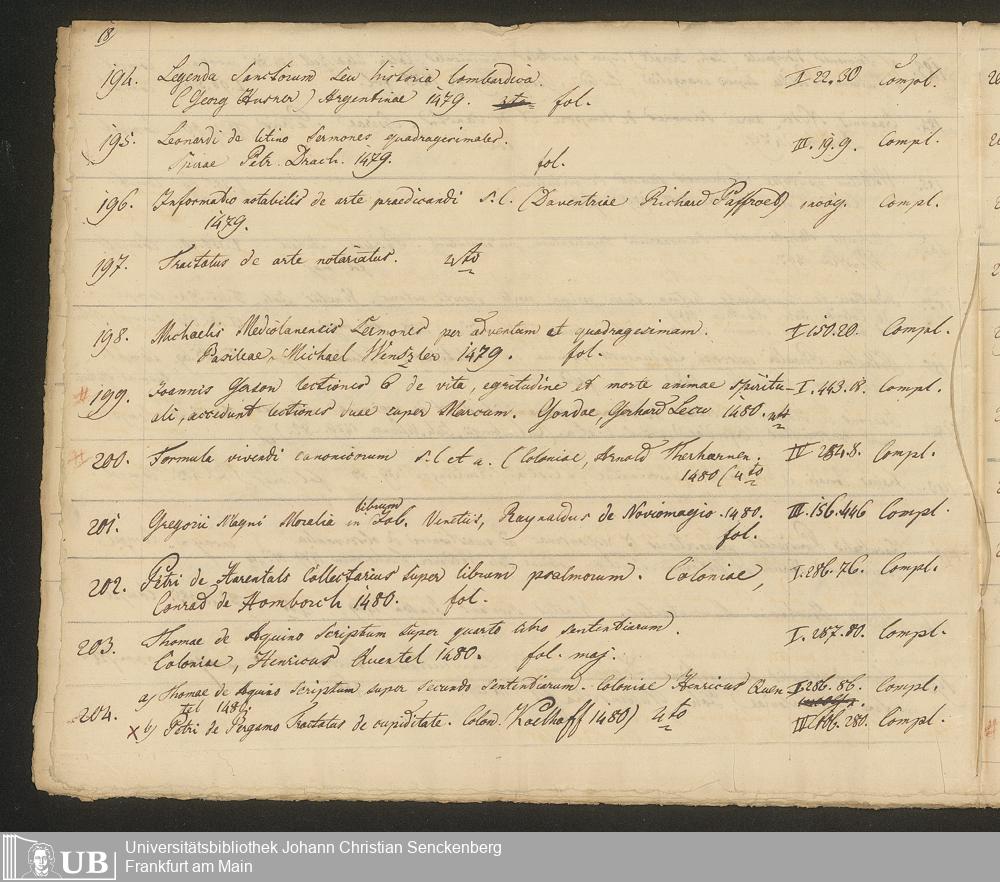 18
194. Legenda Sanctorum seu historia lombardica. I 22.30 Compl.
(Georg Husner) Argentinae 1479. 4to fol.
195. Leonardi de Utino Sermones quadragesimales. III. 19.9. Compl.
Spirae Petr. Drach. 1479. fol.
196. Informatio notabilis de arte praedicandi s. l. (Daventriae Richard Paffroed) Compl.
1479.
197. Tractatus de arte notariatus. 4to
198. Michaelis Mediolanensis Sermones per adventum et quadragesimam. I 150.20. Compl.
Basileae, Michael Wenszler 1479. fol.
# 199. Joannis Gerson lectiones 6 de vita, egritudine et morte animae spiritu- I. 443.18. Compl.
ali, accedunt lectiones duae super Marcum. Goudae, Gerhard Leeu 1480. 4to
# 200. Formula vivendi canonicorum s. l et a. (Coloniae, Arnold Therhoernen. IV 284.8. Compl.
1480 (4to
librum
201. Gregorii Magni Moralia in Job. Venetiis, Raynaldus de Noviomagio. 1480. III. 156.446 Compl.
fol.
202. Petri de Harentals Collectarius super librum psalmorum. Coloniae, I. 286.76. Compl.
Conrad de Homborch 1480. fol.
203. Thomae de Aquino Scriptum super quarto libro sententiarum. I. 287.80. Compl.
Coloniae, Henricus Quentel 1480. fol. maj.
204. a) Thomae de Aquino Scriptum super secundo sententiarum. Coloniae Henricus Quen I. 286. 86. Compl.
tel 1480.
x b) Petri de Pergamo Tractatus de cupiditate. Colon. Koelhoff 1480) 4to IV. 106. 280. Compl.
#
UB
Universitätsbibliothek Johann Christian Senckenberg
Frankfurt am Main